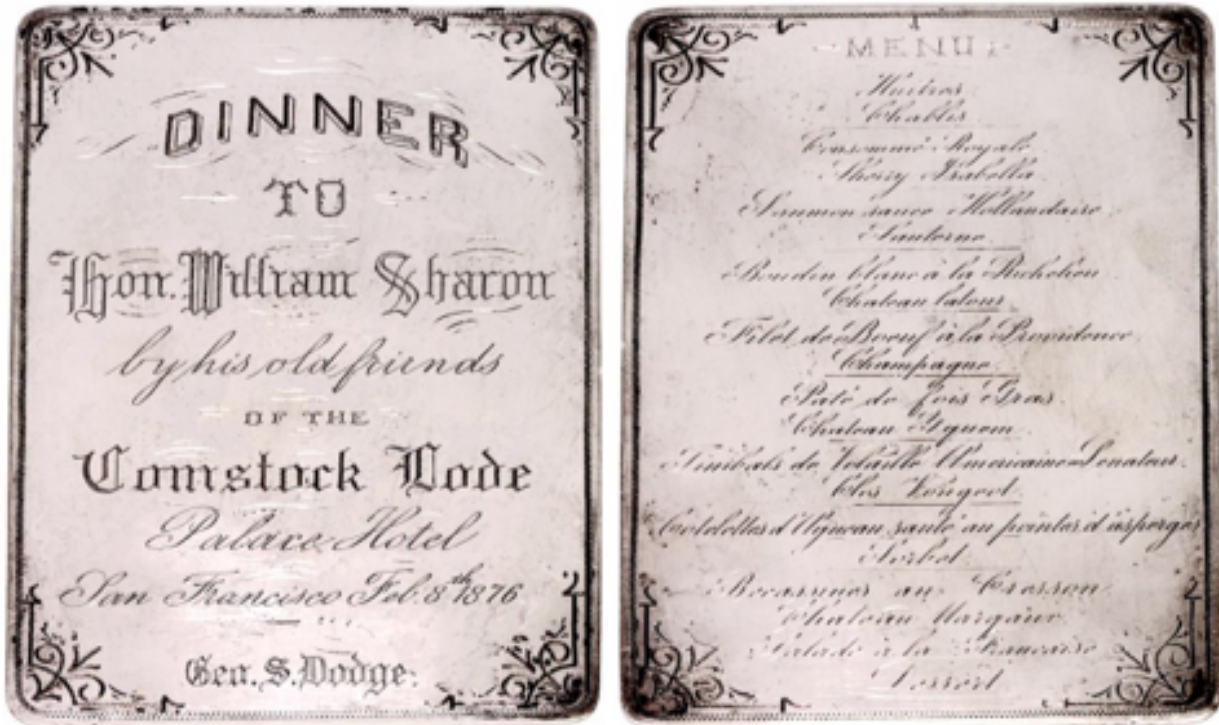 DINNER
TO
Hon. William Sharon
by his old friends
OF THE
Comstock Lode
Palace Hotel
San Francisco Feb. 8th 1876
Geo. S. Dodge.
MENU
Huitres
Chablis
Consommé Royale
Sherry Isabella
Saumon sauce Hollandaise
Sauterne
Boudin blanc à la Richelieu
Chateau latour
Filet de Boeuf à la Providence
Champagne
Paté de fois Gras
Chateau Yquem
Timbals de Volaille Americaine Senateur
Clos Vougeot
Cotelettes d'Agneau sauté au pointes d'asperges
Sorbet
Becassines au Cresson
Chateau Margaux
Salade à la Francaise
Dessert